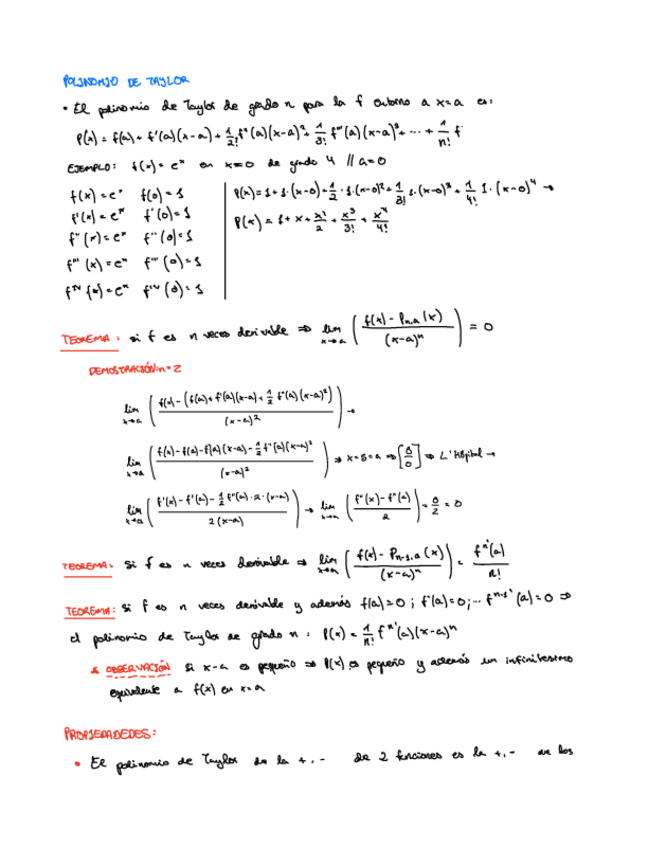 POLINOMIO DE TAYLOR
• El polinomio de Taylor de grado n para la f entorno a x=a es:
P(x) = f(a) + f'(a)(x-a) + 1/2! f''(a)(x-a)² + 1/3! f'''(a)(x-a)³ + ... + 1/n! f
EJEMPLO: f(x) = eˣ en x=0 de grado 4 // a=0
f(x) = eˣ f(0) = 1
f'(x) = eˣ f'(0) = 1
f''(x) = eˣ f''(0) = 1
f'''(x) = eˣ f'''(0) = 1
fᴵⱽ(x) = eˣ fᴵⱽ(0) = 1
P(x) = 1 + 1·(x-0) + 1/2 · 1·(x-0)² + 1/3! 1·(x-0)³ + 1/4! 1·(x-0)⁴ →
P(x) = 1 + x + x²/2 + x³/3! + x⁴/4!
TEOREMA: si f es n veces derivable ⇒ lim x→a ( (f(x) - Pn,a(x)) / (x-a)ⁿ ) = 0
DEMOSTRACIÓN: n=2
lim x→a ( (f(x) - (f(a) + f'(a)(x-a) + 1/2 f''(a)(x-a)²)) / (x-a)² ) →
lim x→a ( (f(x) - f(a) - f'(a)(x-a) - 1/2 f''(a)(x-a)²) / (x-a)² ) ⇒ x = = a ⇒ [0/0] ⇒ L'Hôpital →
lim x→a ( (f'(x) - f'(a) - 1/2 f''(a)·2·(x-a)) / 2(x-a) ) → lim x→a ( (f''(x) - f''(a)) / 2 ) = 0/2 = 0
TEOREMA: Si f es n veces derivable ⇒ lim x→a ( (f(x) - Pn-1,a(x)) / (x-a)ⁿ ) = fⁿ'(a) / n!
TEOREMA: si f es n veces derivable y además f(a)=0; f'(a)=0; ... fⁿ⁻¹'(a)=0 ⇒
el polinomio de Taylor de grado n: P(x) = 1/n! fⁿ'(a)(x-a)ⁿ
* OBSERVACIÓN si x-a es pequeño ⇒ P(x) es pequeño y además un infinitesimo
equivalente a f(x) en x=a
PROPIEDADEDES:
• El polinomio de Taylor de la +, - de 2 funciones es la +, - de los